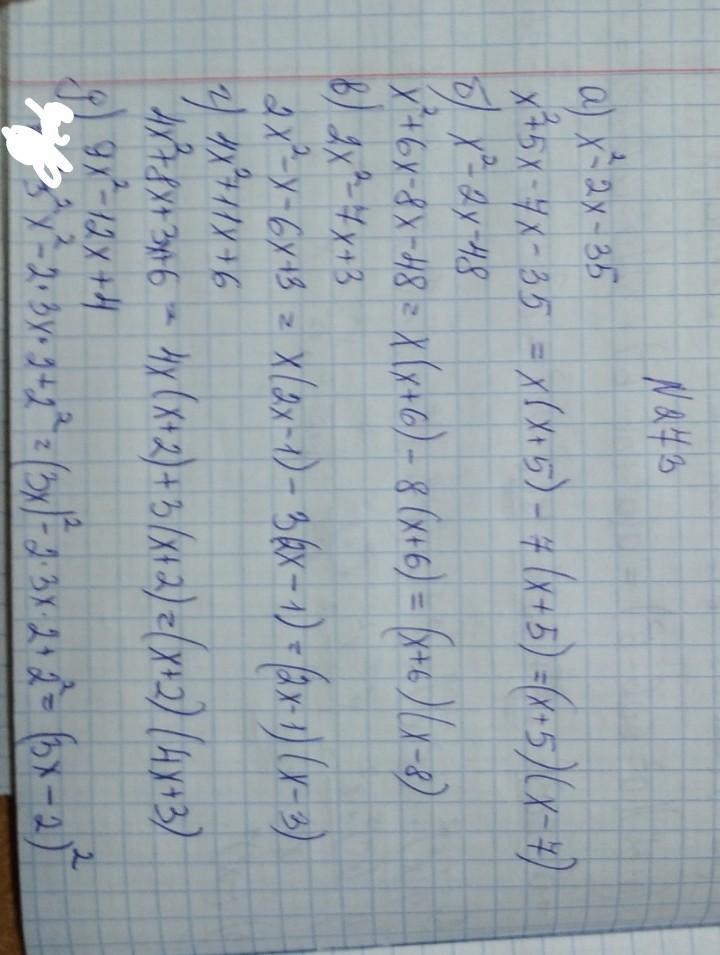 N 273
а) x²-2x-35
x²+5x-7x-35 = x(x+5)-7(x+5)=(x+5)(x-7)
б) x²-2x-48
x²+6x-8x-48= x(x+6)-8(x+6)=(x+6)(x-8)
в) 2x²-7x+3
2x²-x-6x+3= x(2x-1)-3(2x-1)=(2x-1)(x-3)
г) 4x²+11x+6
4x²+8x+3x+6= 4x(x+2)+3(x+2)=(x+2)(4x+3)
д) 9x²-12x+4
3²x²-2·3x·2+2²=(3x)²-2·3x·2+2²=(3x-2)²